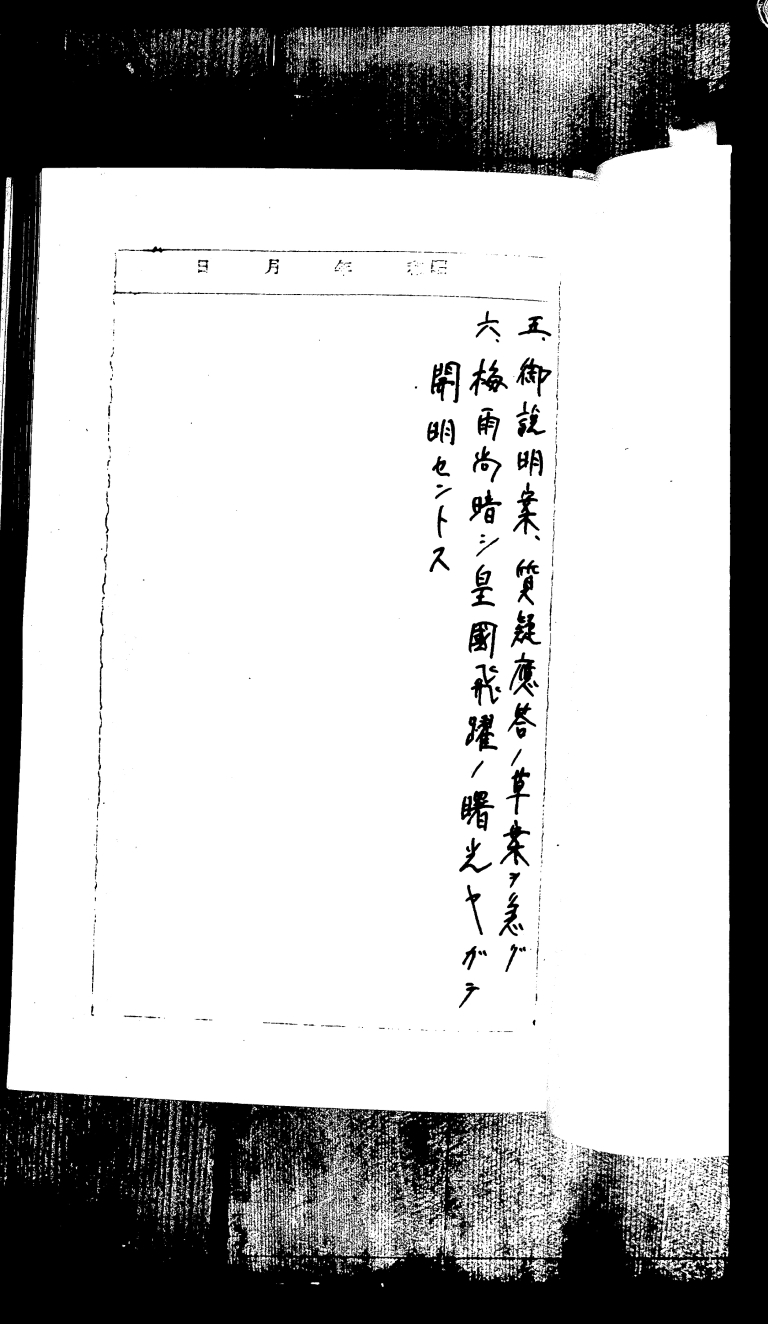 昭和　年　月　日
五、御説明案、質疑應答ノ草案ヲ急グ
六、梅雨尚暗シ皇國飛躍ノ曙光ヤガテ
開明セントス